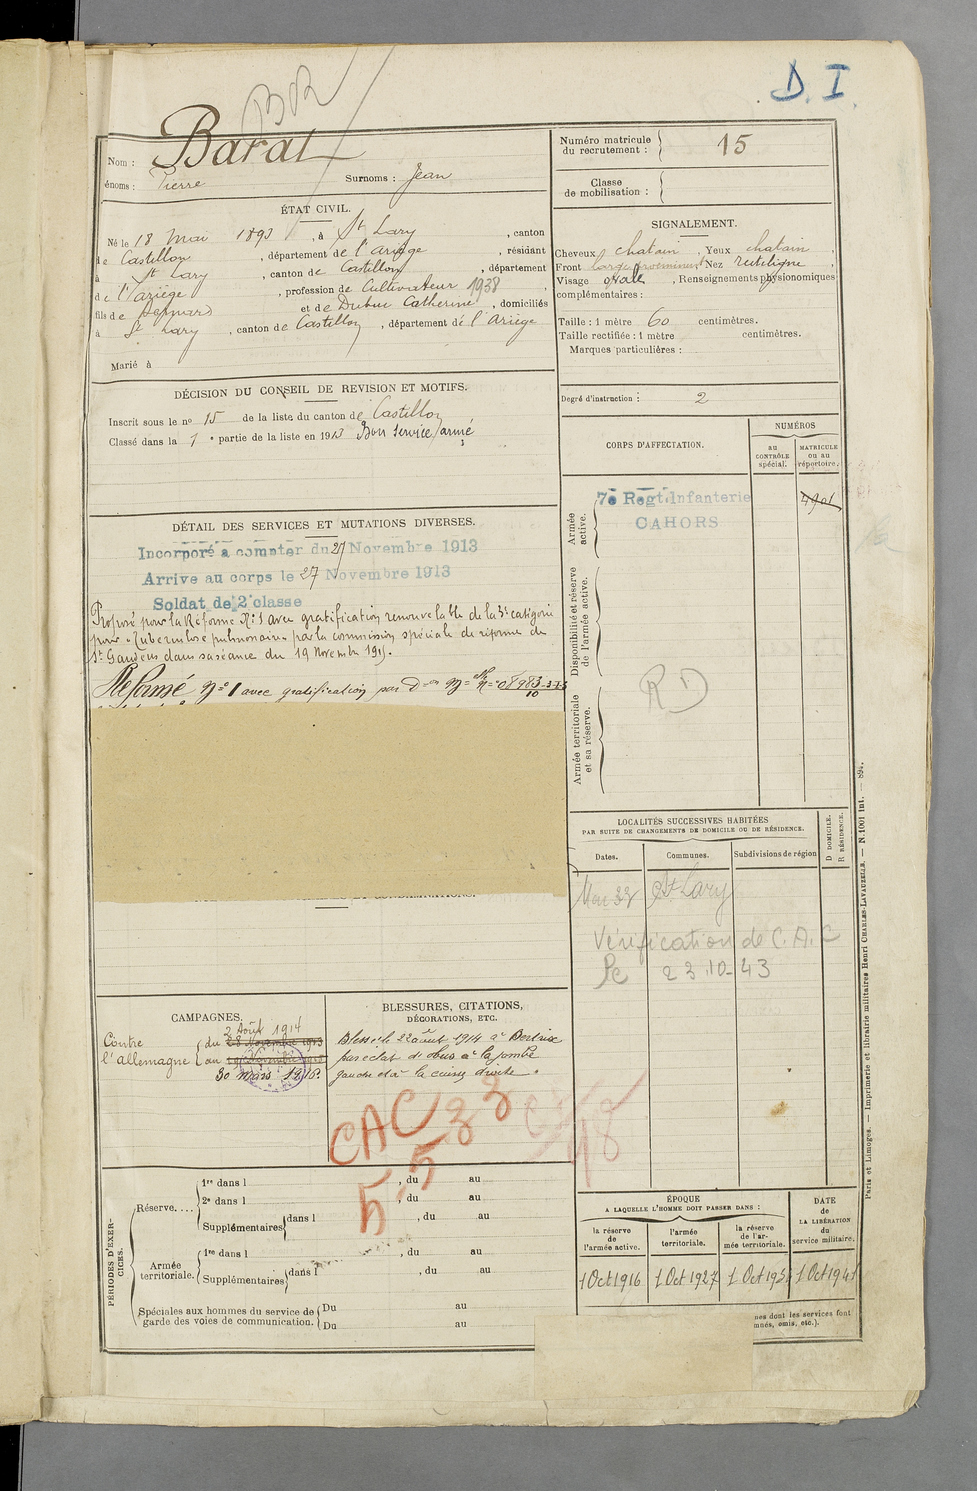 D. I.
Nom : Barat
énoms : Pierre Surnoms : Jean
Numéro matricule du recrutement : 15
Classe de mobilisation :
ÉTAT CIVIL.
Né le 18 Mai 1893, à St Lary, canton
de Castillon, département de l'Ariège, résidant
à St Lary, canton de Castillon, département
de l'Ariège, profession de Cultivateur 1938,
fils de Bernard et de Dubuc Catherine, domiciliés
à St Lary, canton de Castillon, département de l'Ariège
Marié à
SIGNALEMENT.
Cheveux chatain, Yeux chatain,
Front large proeminent Nez rectiligne,
Visage ovale, Renseignements physionomiques
complémentaires :
Taille : 1 mètre 60 centimètres.
Taille rectifiée : 1 mètre centimètres.
Marques particulières :
Degré d'instruction : 2
DÉCISION DU CONSEIL DE REVISION ET MOTIFS.
Inscrit sous le no 15 de la liste du canton de Castillon
Classé dans la 1e partie de la liste en 1913 Bon service armé
CORPS D'AFFECTATION.
NUMÉROS
au CONTRÔLE spécial.
MATRICULE ou au répertoire.
Armée active.
7e Regt. Infanterie
CAHORS
Disponibilité et réserve de l'armée active.
Armée territoriale et sa réserve.
DÉTAIL DES SERVICES ET MUTATIONS DIVERSES.
Incorporé à compter du 27 Novembre 1913
Arrive au corps le 27 Novembre 1913
Soldat de 2e classe
Proposé pour la Réforme N° 1 avec gratification renouvelable de la 3e catégorie
pour "Tuberculose pulmonaire" par la commission spéciale de réforme de
St Gaudens dans sa séance du 19 Novembre 1915.
Réformé n° 1 avec gratification par
LOCALITÉS SUCCESSIVES HABITÉES
PAR SUITE DE CHANGEMENTS DE DOMICILE OU DE RÉSIDENCE.
Dates. Communes. Subdivisions de région
D DOMICILE. R RÉSIDENCE.
St Lary
Vérification de C.A.C
23.10.43
CAMPAGNES.
Contre l'allemagne
du 28 Novembre 1913 2 Août 1914
au 30 mars 1916.
BLESSURES, CITATIONS,
DÉCORATIONS, ETC.
Blessé le 22 août 1914 à Bertrix
par éclat d'obus à la jambe
gauche et à la cuisse droite.
CAC 33
5 5
PÉRIODES D'EXERCICES.
Réserve....
1re dans l , du au
2e dans l , du au
Supplémentaires dans l , du au
Armée territoriale.
1re dans l , du au
Supplémentaires dans l , du au
Spéciales aux hommes du service de garde des voies de communication.
Du au
Du au
ÉPOQUE
A LAQUELLE L'HOMME DOIT PASSER DANS :
la réserve de l'armée active.
l'armée territoriale.
la réserve de l'armée territoriale.
DATE de LA LIBÉRATION du service militaire.
1 Oct 1916
1 Oct 1927
nes dont les services font
més, omis, etc.).
Paris et Limoges. — Imprimerie et librairie militaires Henri CHARLES-LAVAUZELLE. — N. 1001 int. —